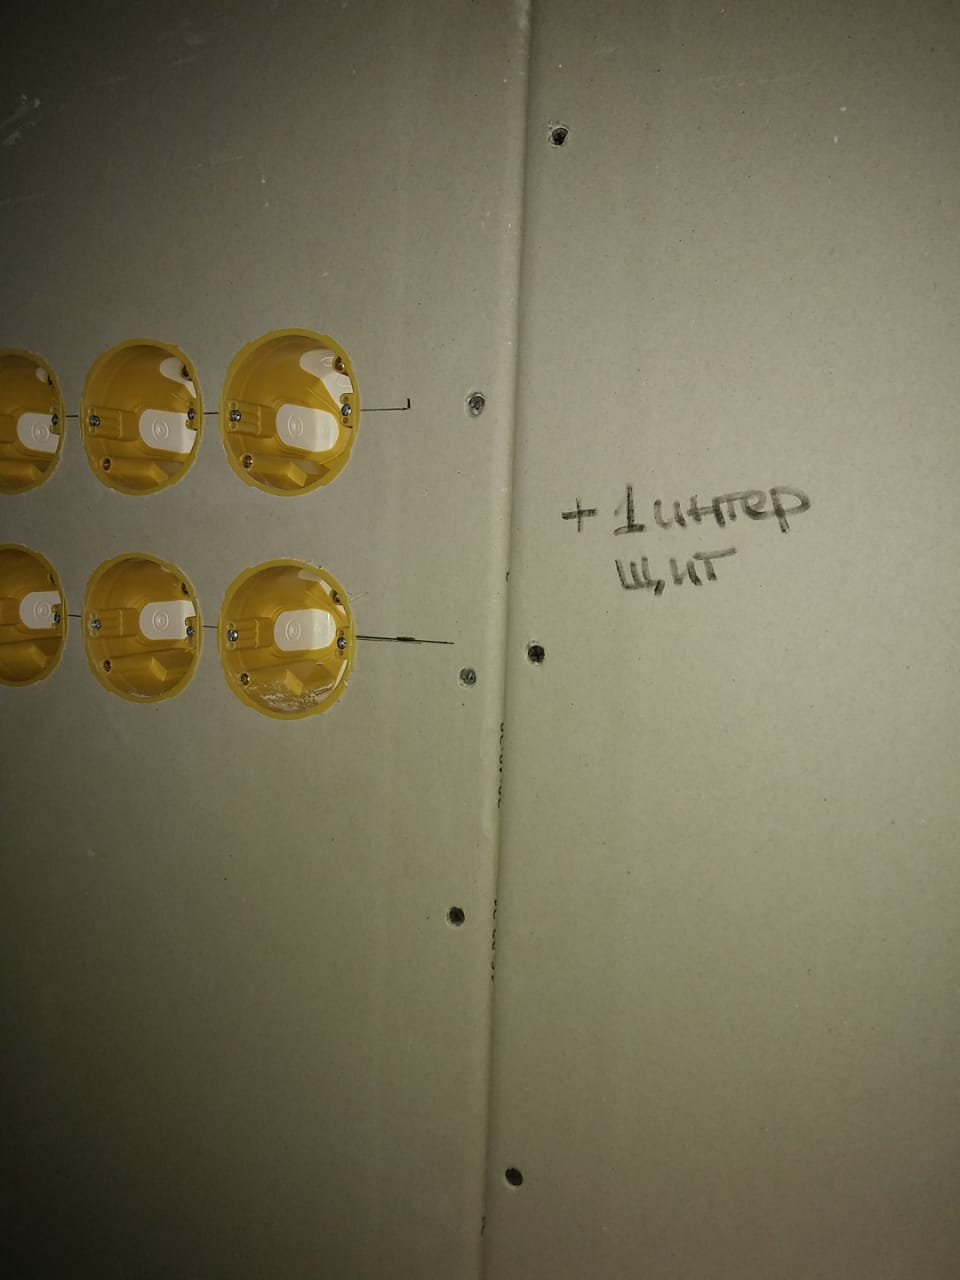 + 1 интер
щит